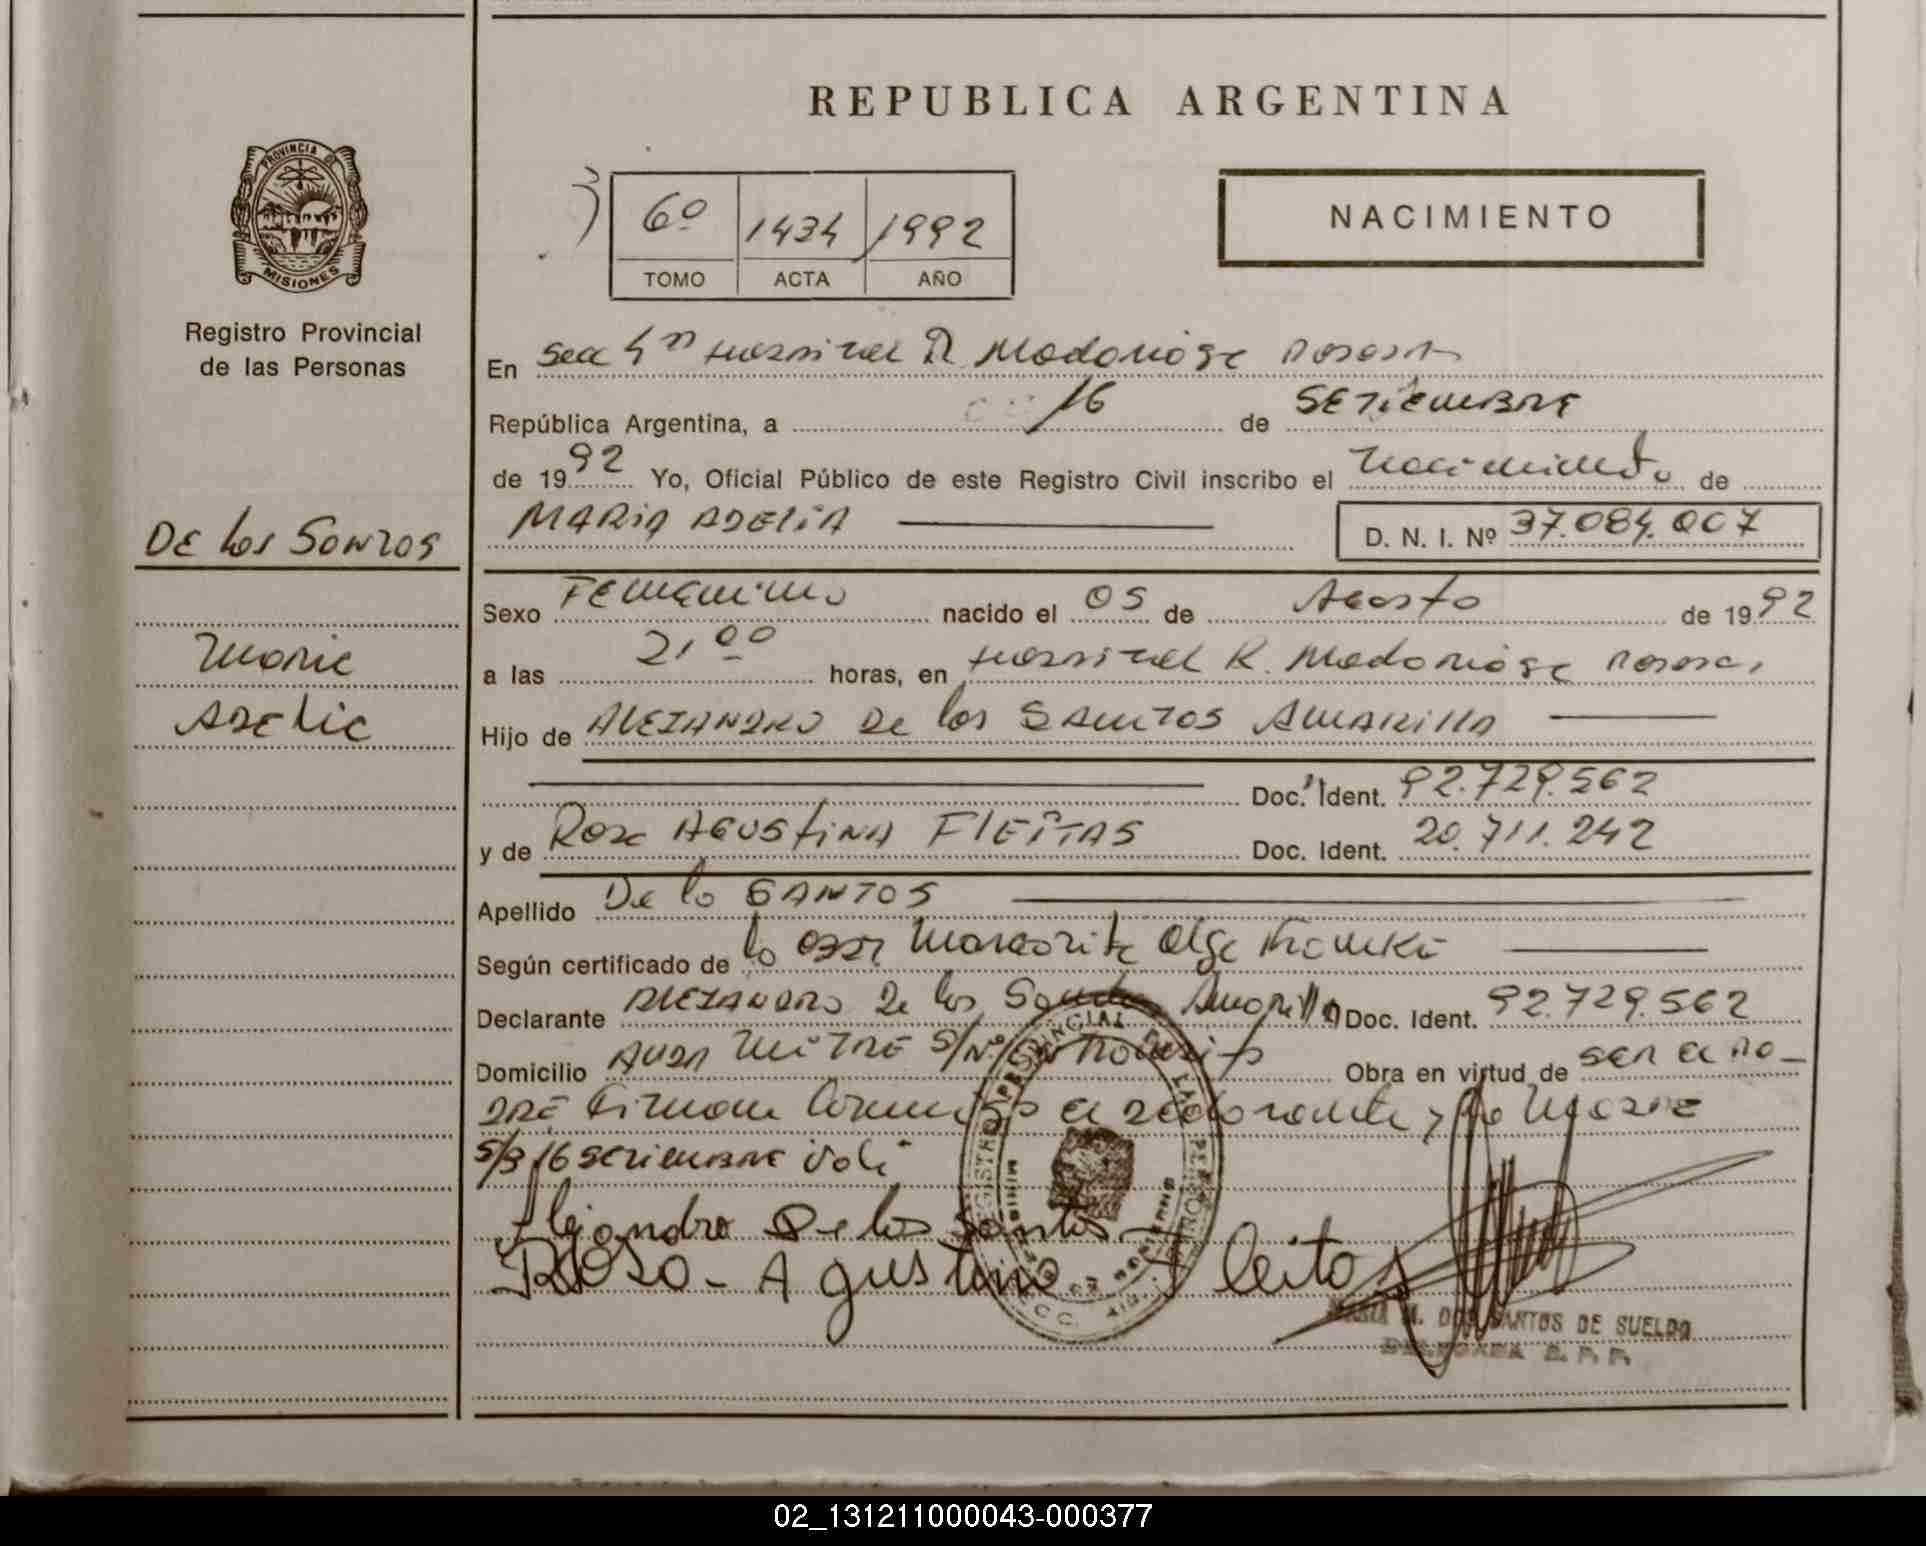 REPUBLICA ARGENTINA
PROVINCIA DE
MISIONES
Registro Provincial
de las Personas
6º 1434 1992
TOMO ACTA AÑO
NACIMIENTO
En Secc 4ª Hospital R. Madariaga Posadas
República Argentina, a 16 de SETIEMBRE
de 1992 Yo, Oficial Público de este Registro Civil inscribo el nacimiento de
MARIA ADELIA D. N. I. Nº 37.084.007
De los Santos
Maria
Adelia
Sexo Femenino nacido el 05 de Agosto de 1992
a las 21 00 horas, en Hospital R. Madariaga Posadas
Hijo de ALEJANDRO De los SANTOS AMARILLA
Doc. Ident. 92.729.562
y de Rosa AGUSTINA FLEITAS Doc. Ident. 20.711.242
Apellido De lo SANTOS
Según certificado de la Margarita Olga
Declarante ALEJANDRO De los Santos Amarilla Doc. Ident. 92.729.562
Domicilio AVDA MITRE S/Nº Obra en virtud de ser el pa-
dre Firman el declarante y la Madre
S/B 16 SETIEMBRE Vale
Alejandro De los Santos
Rosa - Agustina Fleitas
MARIA M. DOS SANTOS DE SUELDO
DELEGADA R. P. P.
02_131211000043-000377